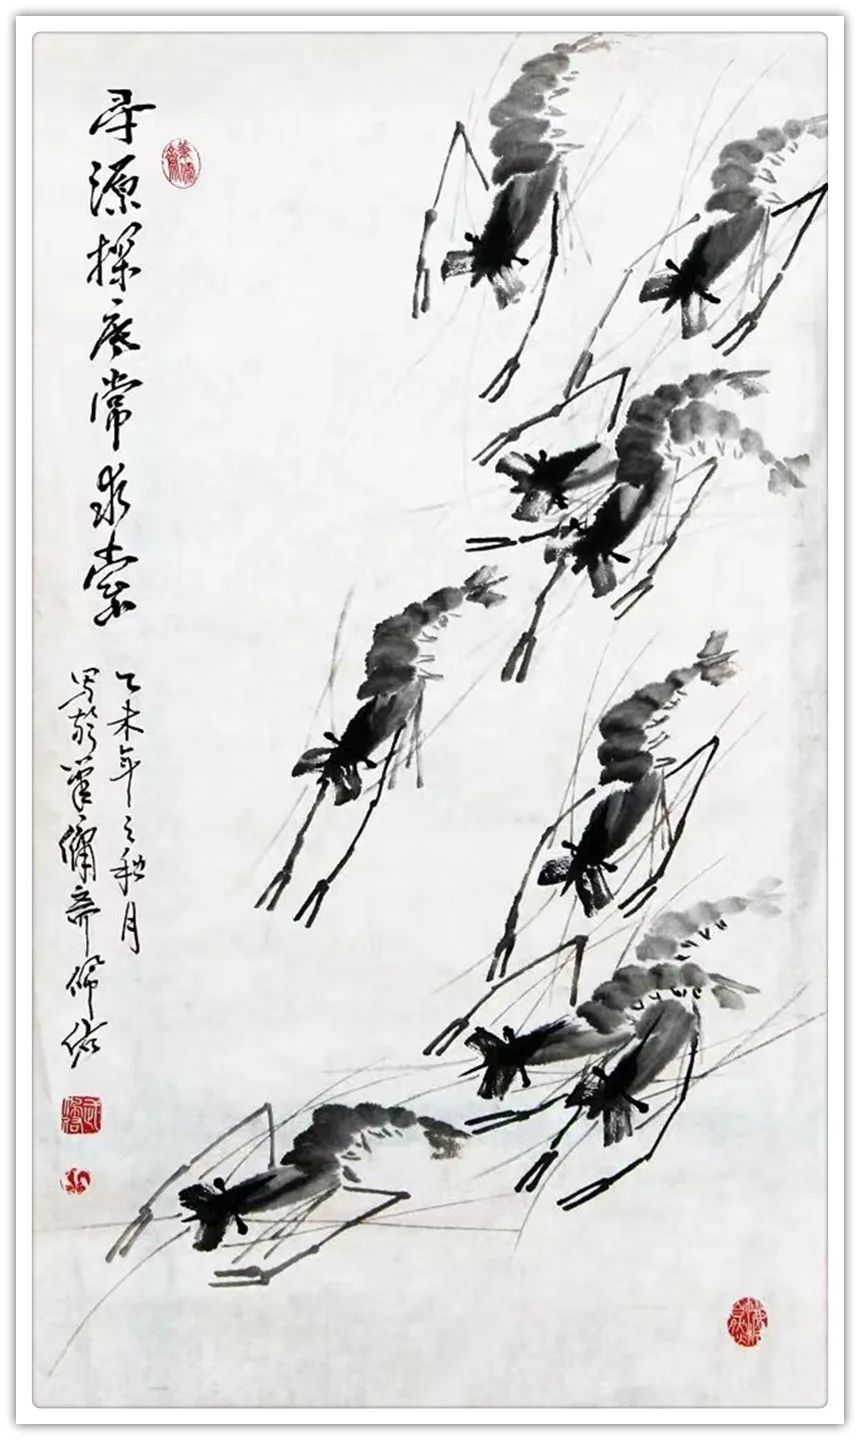 寻源探底常求索
乙未年之秋月
写于笔傭斋佩佑